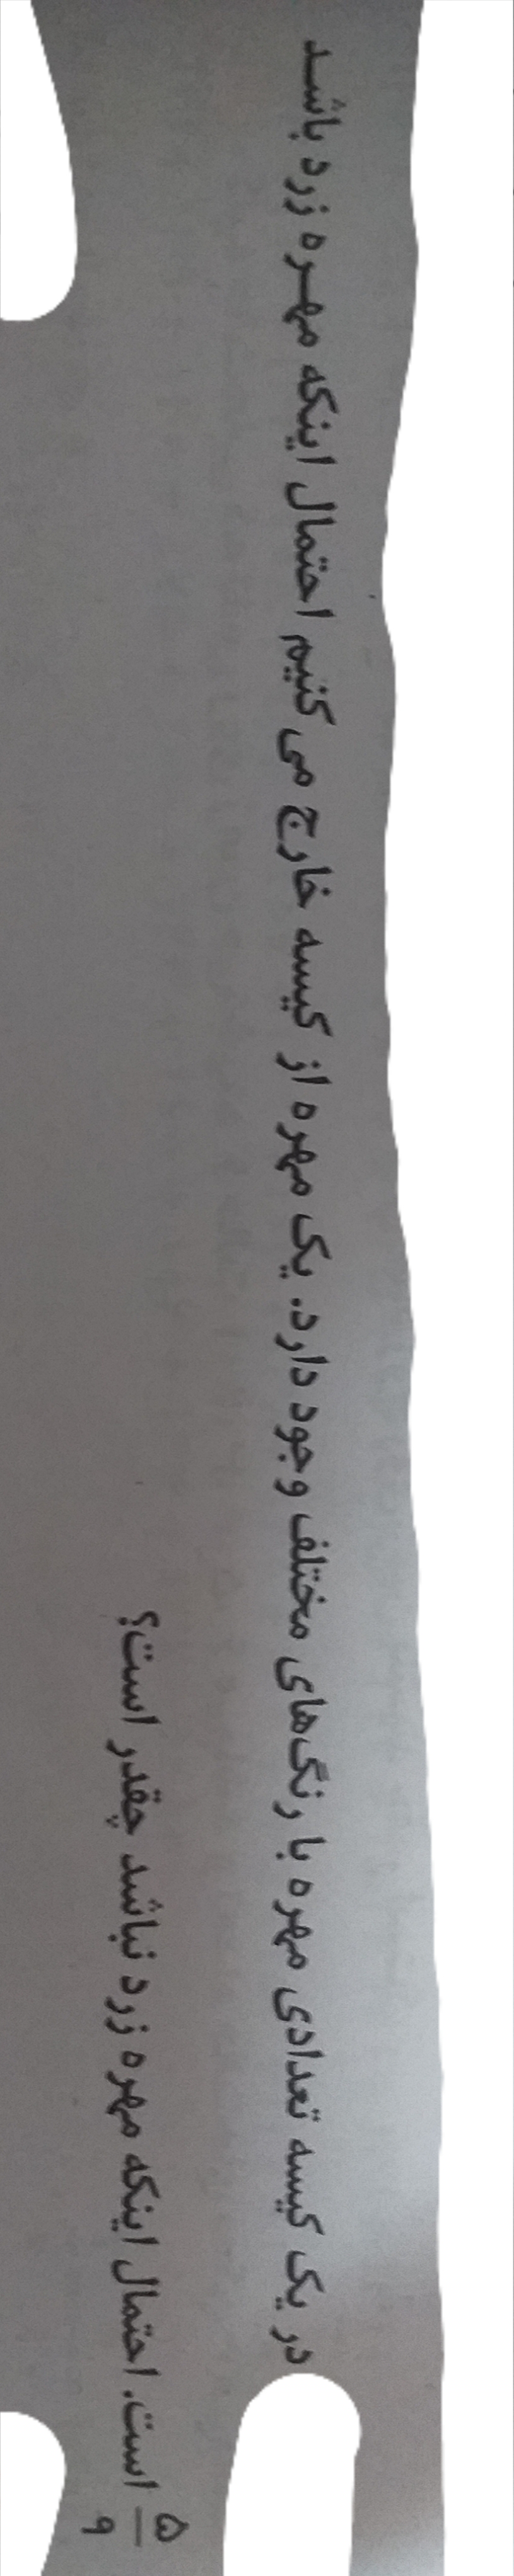 در یک کیسه تعدادی مهره با رنگ‌های مختلف وجود دارد. یک مهره از کیسه خارج می‌کنیم احتمال اینکه مهره زرد باشد
۵/۹ است. احتمال اینکه مهره زرد نباشد چقدر است؟